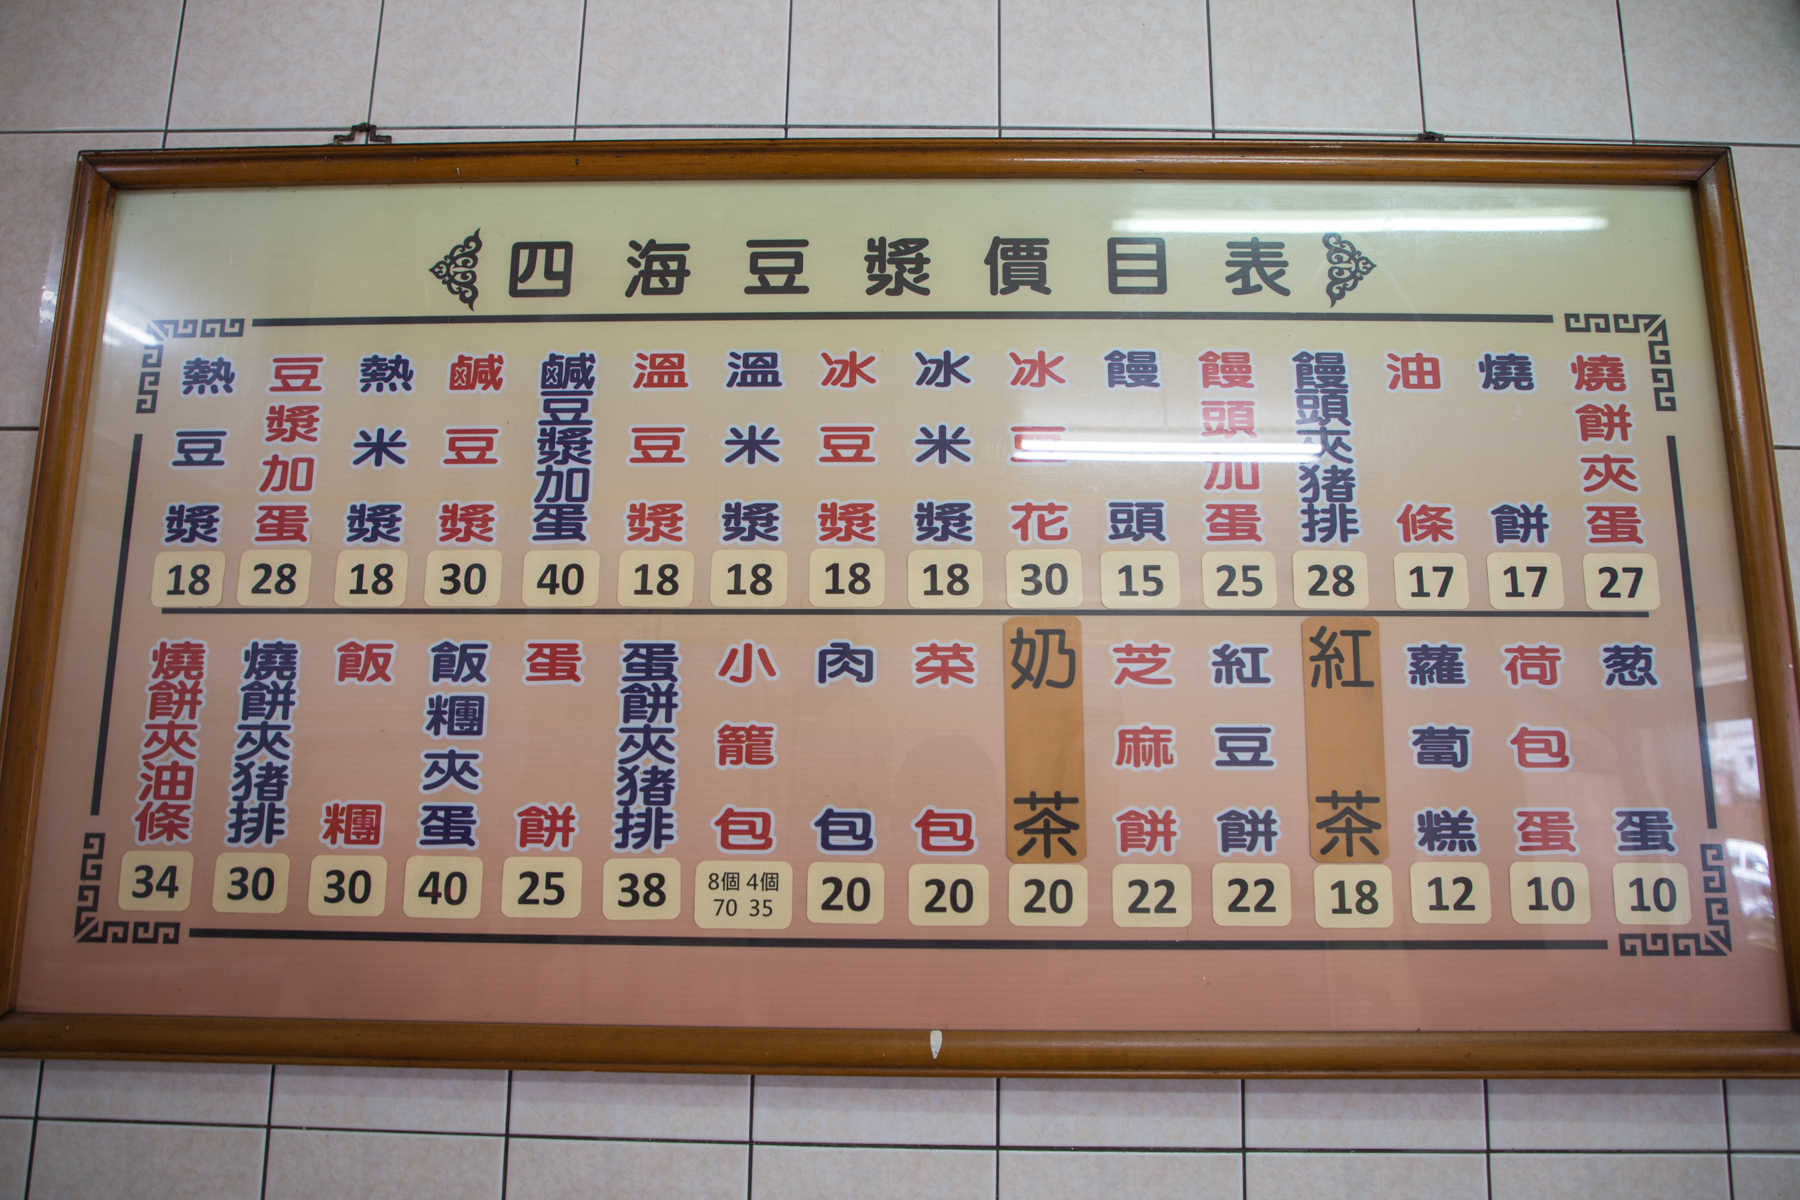 四海豆漿價目表
熱豆漿 18
豆漿加蛋 28
熱米漿 18
鹹豆漿 30
鹹豆漿加蛋 40
溫豆漿 18
溫米漿 18
冰豆漿 18
冰米漿 18
冰豆花 30
饅頭 15
饅頭加蛋 25
饅頭夾猪排 28
油條 17
燒餅 17
燒餅夾蛋 27
燒餅夾油條 34
燒餅夾猪排 30
飯糰 30
飯糰夾蛋 40
蛋餅 25
蛋餅夾猪排 38
小籠包 8個 70 4個 35
肉包 20
菜包 20
奶茶 20
芝麻餅 22
紅豆餅 22
紅茶 18
蘿蔔糕 12
荷包蛋 10
葱蛋 10